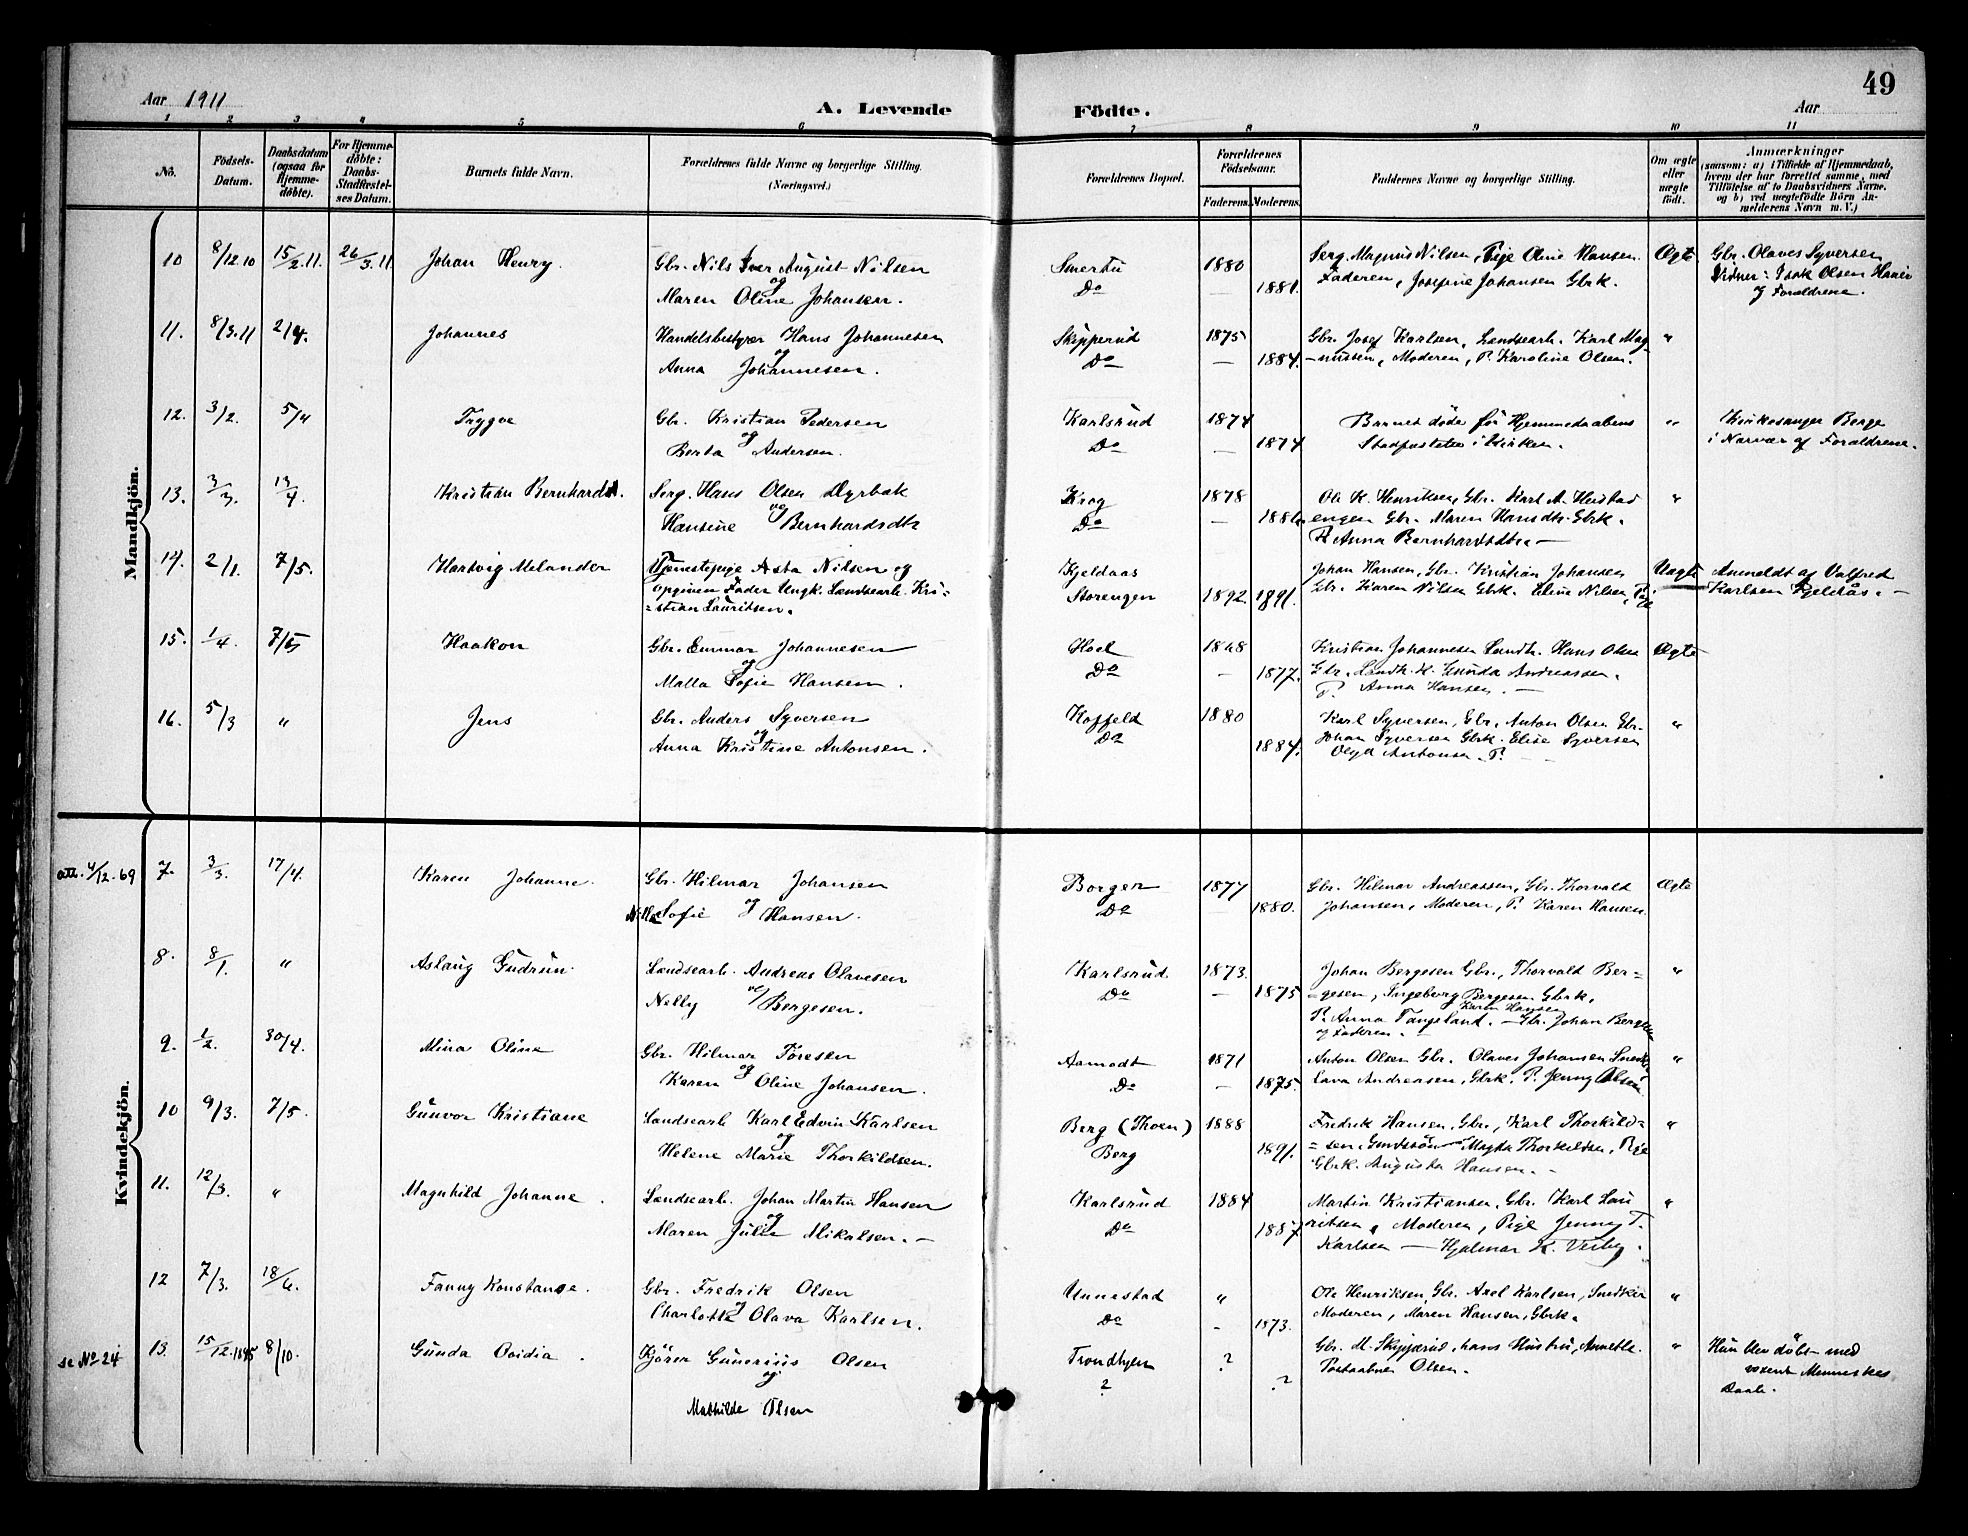 49
Aar 1911
A. Levende
Födte.
Aar
1 2 3 4 5 6 7 8 9 10 11
No.
Födsels-Datum.
Daabsdatum (ogsaa for Hjemmedöbte).
For Hjemmedöbte: Daabs-Stadfæstelses Datum.
Barnets fulde Navn.
Forældrenes fulde Navne og borgerlige Stilling.
(Næringsvei.)
Forældrenes Bopæl.
Forældrenes Födselsaar.
Faderens. Moderens.
Faddernes Navne og borgerlige Stilling.
Om ægte eller uægte födt.
Anmærkninger
(saasom: a) i Tilfælde af Hjemmedaab, hvem der har forrettet samme, med Tilföielse af to Daabsvidners Navne. og b) ved uægtefödte Börn Anmelderens Navn m. V.)
Mandkjön.
10 8/12.10 15/2.11. 26/3.11 Johan Henry. Gbr. Nils Iver August Nilsen Smertu 1880 Serg. Magnus Nilsen, Pige Oline Hansen. Ægte Gbr. Olaves Syversen
og
Maren Oline Johansen. Do — 1881. Faderen, Josefine Johansen Gbrk. Vidner: Isak Olsen
og Forældrene.
11. 8/3.11 2/4. Johannes Handelsbestyrer Hans Johannesen Skipperud 1875 Gbr. Josef Karlsen, Landsearb. Karl Mag- "
og
Anna Johannesen. Do — 1884. -nussen, Moderen, P. Karoline Olsen.
12. 3/2. 5/4 Trygve Gbr. Kristian Pedersen Karlsrud 1874 Barnet døde før Hjemmedaabens " Kirkesanger Berge
og
Berta Andersen. Do — 1874 Stadfæstelse i Kirken. i Narvær af Forældrene.
13. 3/3. 17/4. Kristian Bernhard. Serg. Hans Olsen Dyrbak Krog 1878 Ole K. Henriksen, Gbr. Karl A. "
og
Hansine Bernhardsdtr Do — 1886 engen Gbr. Maren Hansdtr. Gbrk.
P. Anna Bernhardsdtr. —
14. 2/1. 7/5. Hartvig Melander Tjenestepige Asta Nilsen og Kjeldaas Johan Hansen, Gbr. Kristian Johansen Uægte Anmeldt af Valfred
opgiven Fader Ungk. Landsearb. Kri- Storengen 1892. 1891. Gbr. Karen Nilsen Gbrk. Eline Nilsen, Pige Karlsen Kjeldås. —
=stian Lauritsen.
15. 1/4. 7/5 Haakon Gbr. Emmar Johannesen Hoel 1868 Kristian Johannesen Landh. Hans Olsen Ægte
og
Malla Sofie Hansen. Do — 1877. Gbr. Landh. H. Gunda Andreassen.
P. Anna Hansen. —
16. 5/3 " Jens Gbr. Anders Syversen Koppeld 1880 Karl Syversen, Gbr. Anton Olsen Gbr. "
og
Anna Kristine Antonsen. Do 1884. Johan Syversen Gbrk. Elise Syversen
Olga Antonsen. P. —
Kvindekjön.
att. 4/12.69 7. 3/3. 17/4. Karen Johanne. Gbr. Hilmar Johansen Borgen 1877 Gbr. Hilmar Andreassen, Gbr. Thorvald Ægte
og
Sofie Hansen. Do — 1880. Johansen, Moderen, P. Karen Hansen.
8. 8/1. " Aslaug Gudrun Landsearb. Andreas Olavesen Karlsrud 1873. Johan Bergesen Gbr., Thorvald Ber- "
og
Nelly Bergesen. Do — 1875 =gesen, Ingeborg Bergesen. Gbrk.
Karen Hansen
P. Anna Tangeland. — Gbr. Johan Bergesen
og Faderen. —
9. 1/2. 30/4. Mina Oline Gbr. Hilmar Toresen Aamodt 1871 Anton Olsen Gbr. Olaves Johansen "
og
Karen Oline Johansen. Do — 1875. Lava Andreasen, Gbrk. P. Jenny Olsen
10 9/3. 7/5. Gunvor Kristiane Landsearb. Karl Edvin Karlsen Berg (Thoen) 1888 Fredrik Hansen, Gbr., Karl Thorkild- "
og
Helene Marie Thorkildsen. Berg 1891. =sen, Magda Thorkildsen, Pige
Gbrk. Augusta Hansen. —
11. 12/3. " Magnhild Johanne. Landsearb. Johan Martin Hansen Karlsrud 1884 Martin Kristiansen, Gbr. Karl Lau "
og
Maren Julie Mikalsen. — Do 1887 ritsen, Moderen, Pige Jenny T.
Karlsen — Hjalmar K. Verby.
12 7/3. 18/6. Fanny Konstance. Gbr. Fredrik Olsen Unnestad " Ole Henriksen, Gbr. Axel Karlsen, "
og
Charlotte Olava Karlsen. Do — 1873. Moderen, Maren Hansen, Gbrk.
se No 24 13. 15/12.1895 8/10. Gunda Ovidia. Kjörer Gunerius Olsen Trondhjem ? Gbr. M. Skipperud, hans Hustru, Annette " Hun blev döbt med
og
Mathilde Olsen ? ? Postaabner Olsen. voxent Menneskes
Daab.